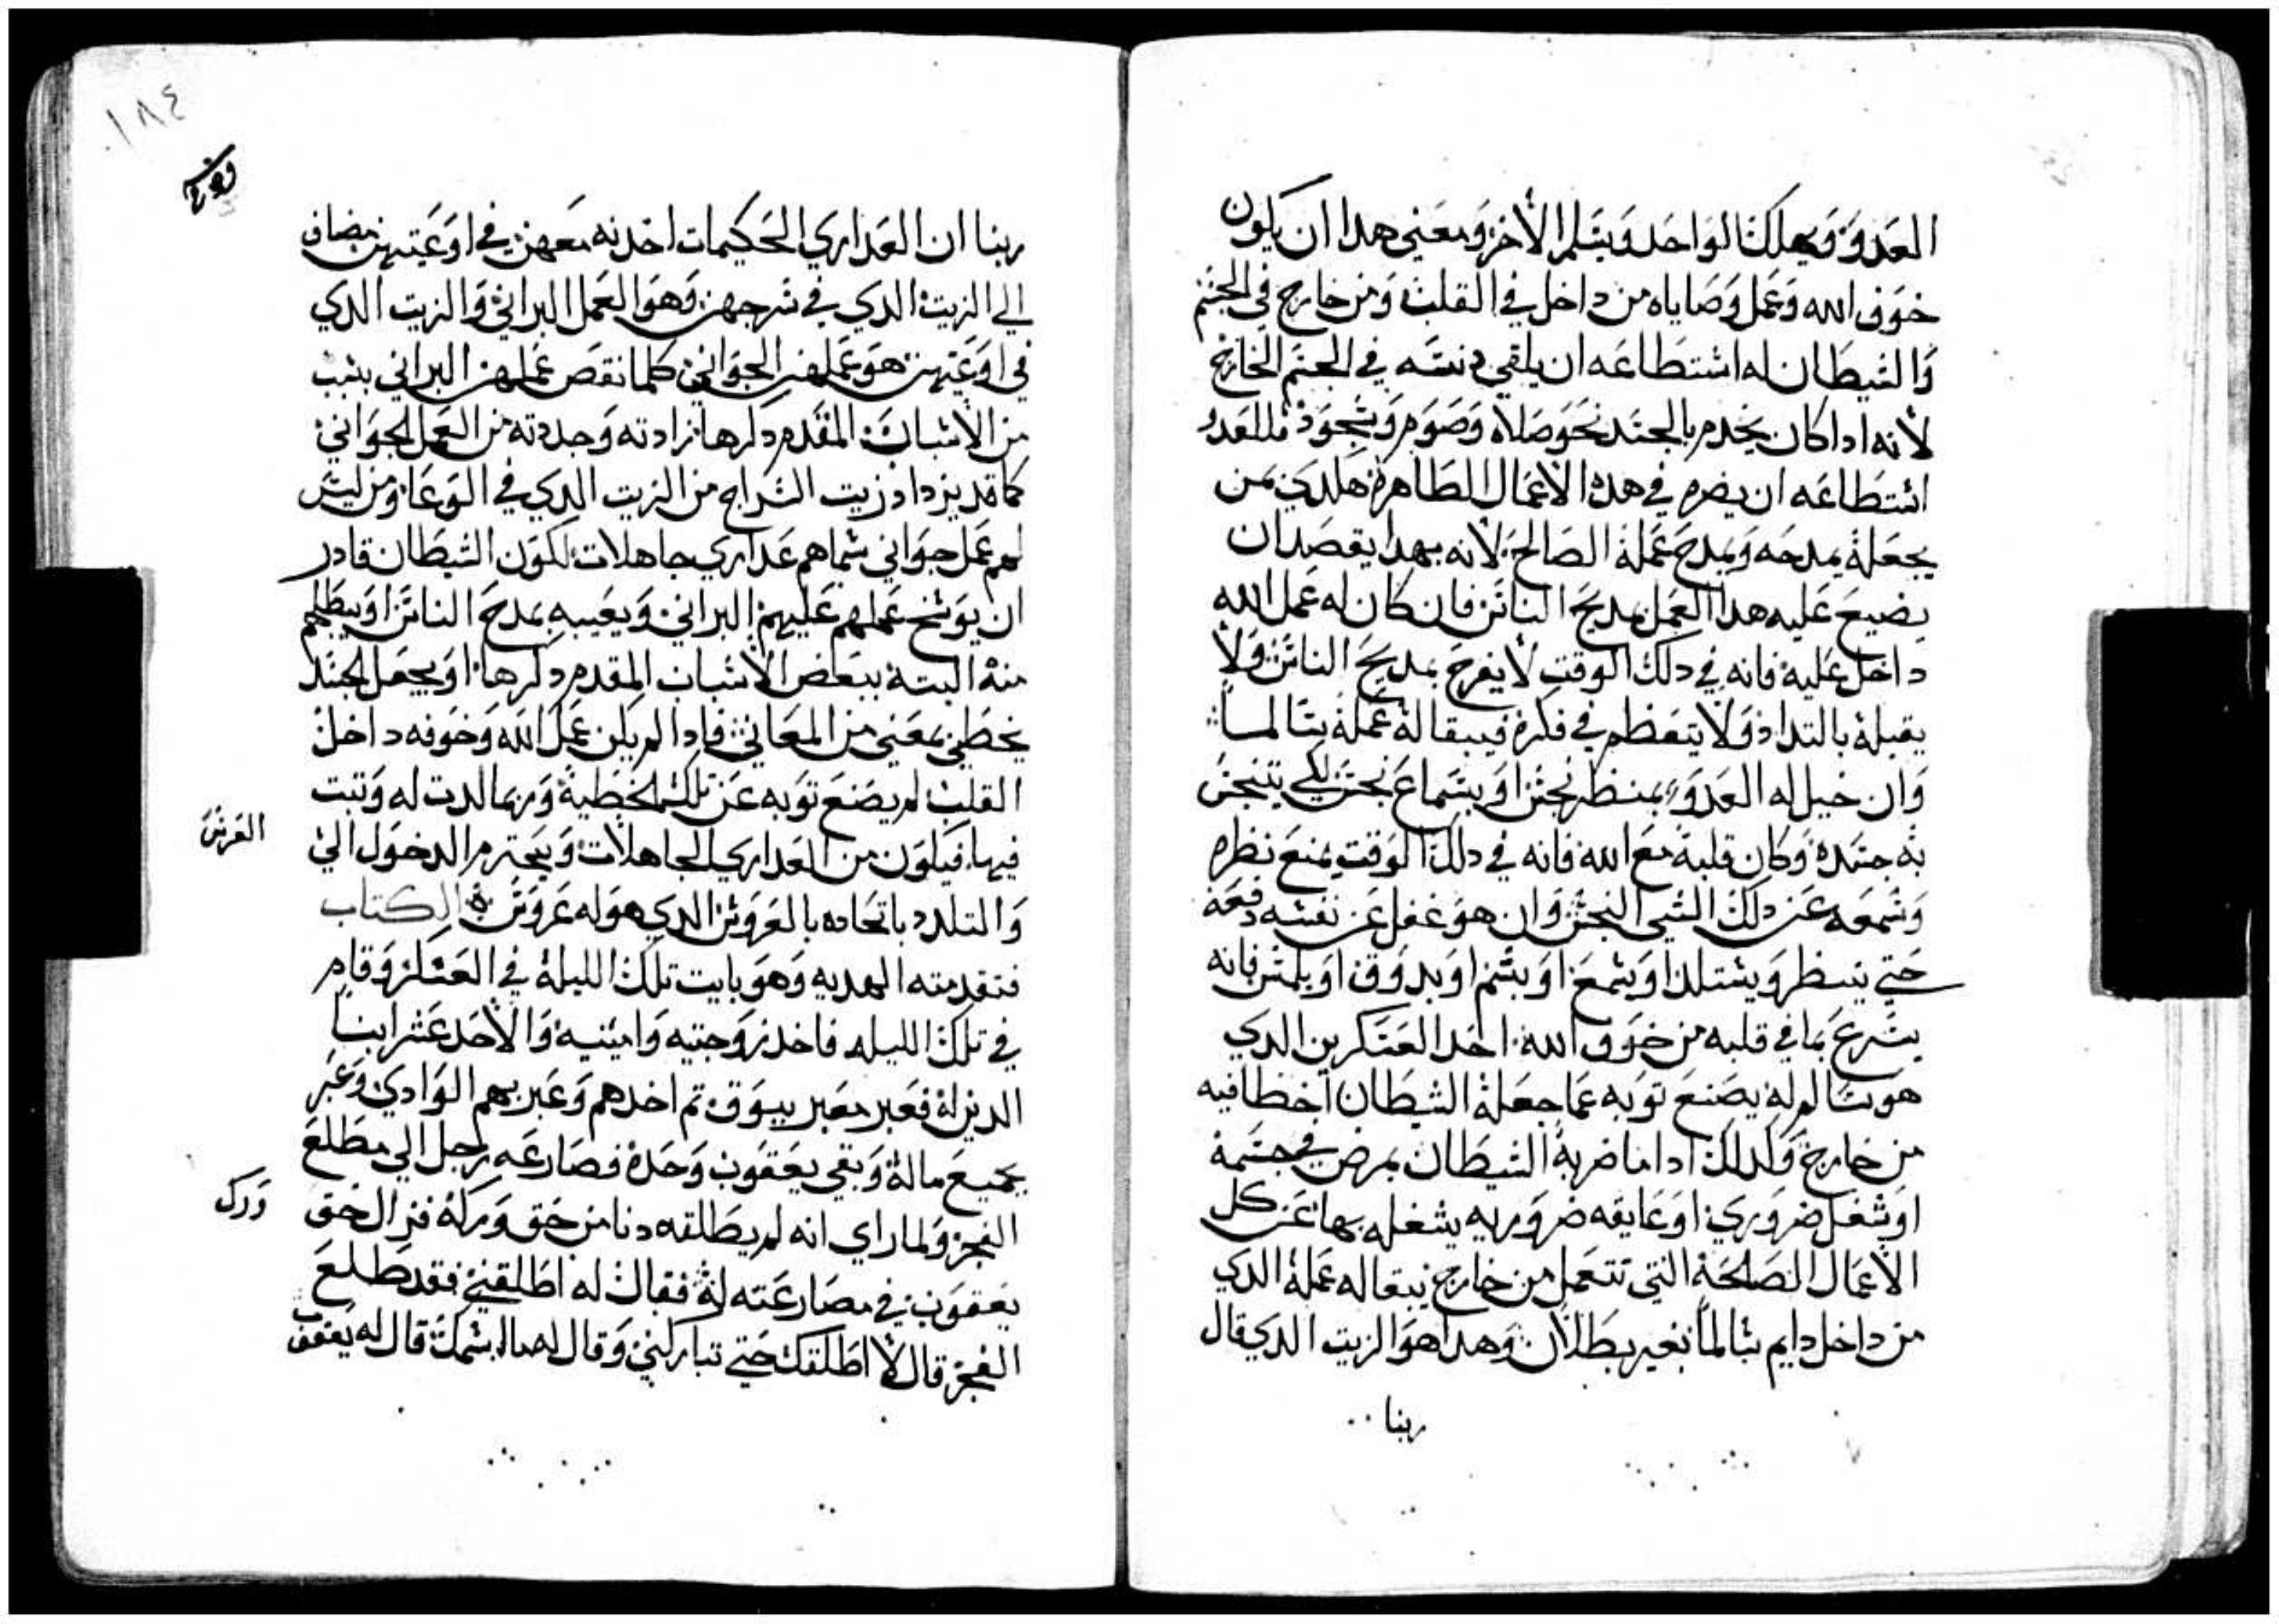 العدو ويهلك الواحد ويسلم الاخر ومعني هدا ان يكون
خوف الله وعمل وصاياه من داخل في القلب ومن خارج في الجسم
والشيطان له استطاعه ان يلقي دنسه في الجسم الخارج
لانه ادا كان يخدم بالجسد نحو صلاة وصوم وسجود فللعدو
استطاعه ان يضره في هده الاعمال الظاهرة هكدي بمن
يجعله يمدحه ويمدح عمله الصالح لانه بهدا يقصد ان
يضيع عليه هدا العمل بمديح الناس فان كان له عمل الله
داخل عليه فانه في دلك الوقت لا يفرح بمديح الناس ولا
يقبله بالتداد ولا يتعظم في فكره فيبقا له عمله سالما
وان خيل له العدو بمنظر نجس او بسماع نجس لكي يتنجس
به جسده وكان قلبه مع الله فانه في دلك الوقت يمنع نظره
وسمعه عن دلك الشي النجس وان هو غفل عن نفسه دفعة
حتي ينظر ويستلد او يسمع او يشم او يدوق او يلمس فانه
يسرع بما في قلبه من خوف الله احد العسكرين الدي
هو سالم له يصنع توبه عما جعله الشيطان اخطا فيه
من خارج وكدلك ادا ما ضربه الشيطان بمرض في جسمه
او شغل ضروري او عايقه ضروريه يشغله بها عن كل
الاعمال الصالحة التي تتعمل من خارج يبقا له عمله الدي
من داخل دايم سالما بغير بطلان وهدا هو الزيت الدي قال
ربنا
١٨٤
ربنا ان العداري الحكيمات اخدنه معهن في اوعيتهن مضاف
الي الزيت الدي في سرجهن وهو العمل البراني والزيت الدي
في اوعيتهن هو عملهن الجواني كلما نقص عملهن البراني بسبب
من الاسباب المقدم دكرها زادته وجددته من العمل الجواني
كما قد يزداد زيت السراج من الزيت الدي في الوعا ومن ليس
لهم عمل جواني سماهم عداري جاهلات لكون الشيطان قادر
ان يوسخ عملهم عليهم البراني ويعيبه بمدح الناس او يبطلهم
منه البتة ببعض الاسباب المقدم دكرها او يجعل الجسد
يخطي بمعني من المعاني فادا لم يكن عمل الله وخوفه داخل
القلب لم يصنع توبه عن تلك الخطية وربما لدت له وتبت
فيها فيكون من العداري الجاهلات ويحترم الدخول الي
العرس
والتلدد باتحاده بالعروس الدي هو له عروسة الكتاب
فتقدمته الهديه وهو بايت تلك الليلة في العسكر وقام
في تلك الليله فاخد زوجتيه وامتيه والاحد عشر ابنا
الدين له فعبر معبر يبوق تم اخدهم وعبر بهم الوادي وعبر
بجميع ماله وبقي يعقوب وحده فصارعه رجل الي مطلع
الفجر ولما راي انه لم يطلقه دنا من حق وركه فزال حق
ورك
يعقوب في مصارعته له فقال له اطلقني فقد طلع
الفجر قال لا اطلقك حتي تباركني وقال له ما اسمك قال له يعقوب